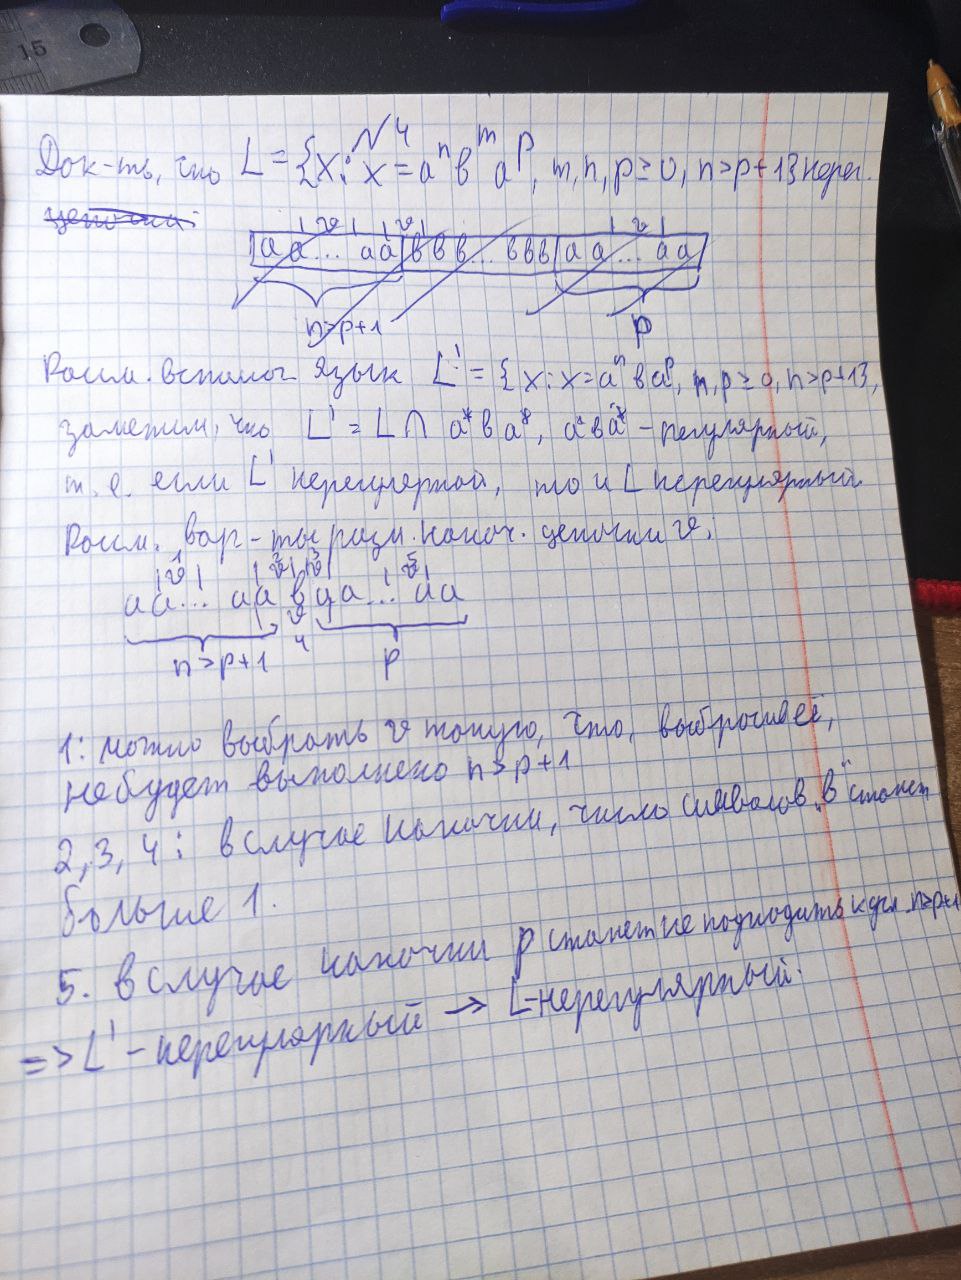 15
N 4
Док-ть, что L = {x: x = aⁿ вᵐ aᵖ, m, n, p ≥ 0, n > p+1} нерег.
цепочки:
v v v
a a ... a a в в в ... в в в a a ... a a
n > p+1 p
Рассм. вспомог. язык L' = {x: x = aⁿ в aᵖ, n, p ≥ 0, n > p+1},
заметим, что L' = L ∩ a* в a*, a* в a* - регулярный,
т. е. если L' нерегулярный, то и L нерегулярный.
Рассм. вар-ты разм. накач. цепочки v:
1 2 3 5
v v v v
a a ... a a в a a ... a a
v
4
n > p+1 p
1: можно выбрать v такую, что, выбросив её,
не будет выполнено n > p+1
2, 3, 4: в случае накачки, число символов "в" станет
больше 1.
5. в случае накачки p станет не подходить к усл. n > p+1
=> L' - нерегулярный → L - нерегулярный.